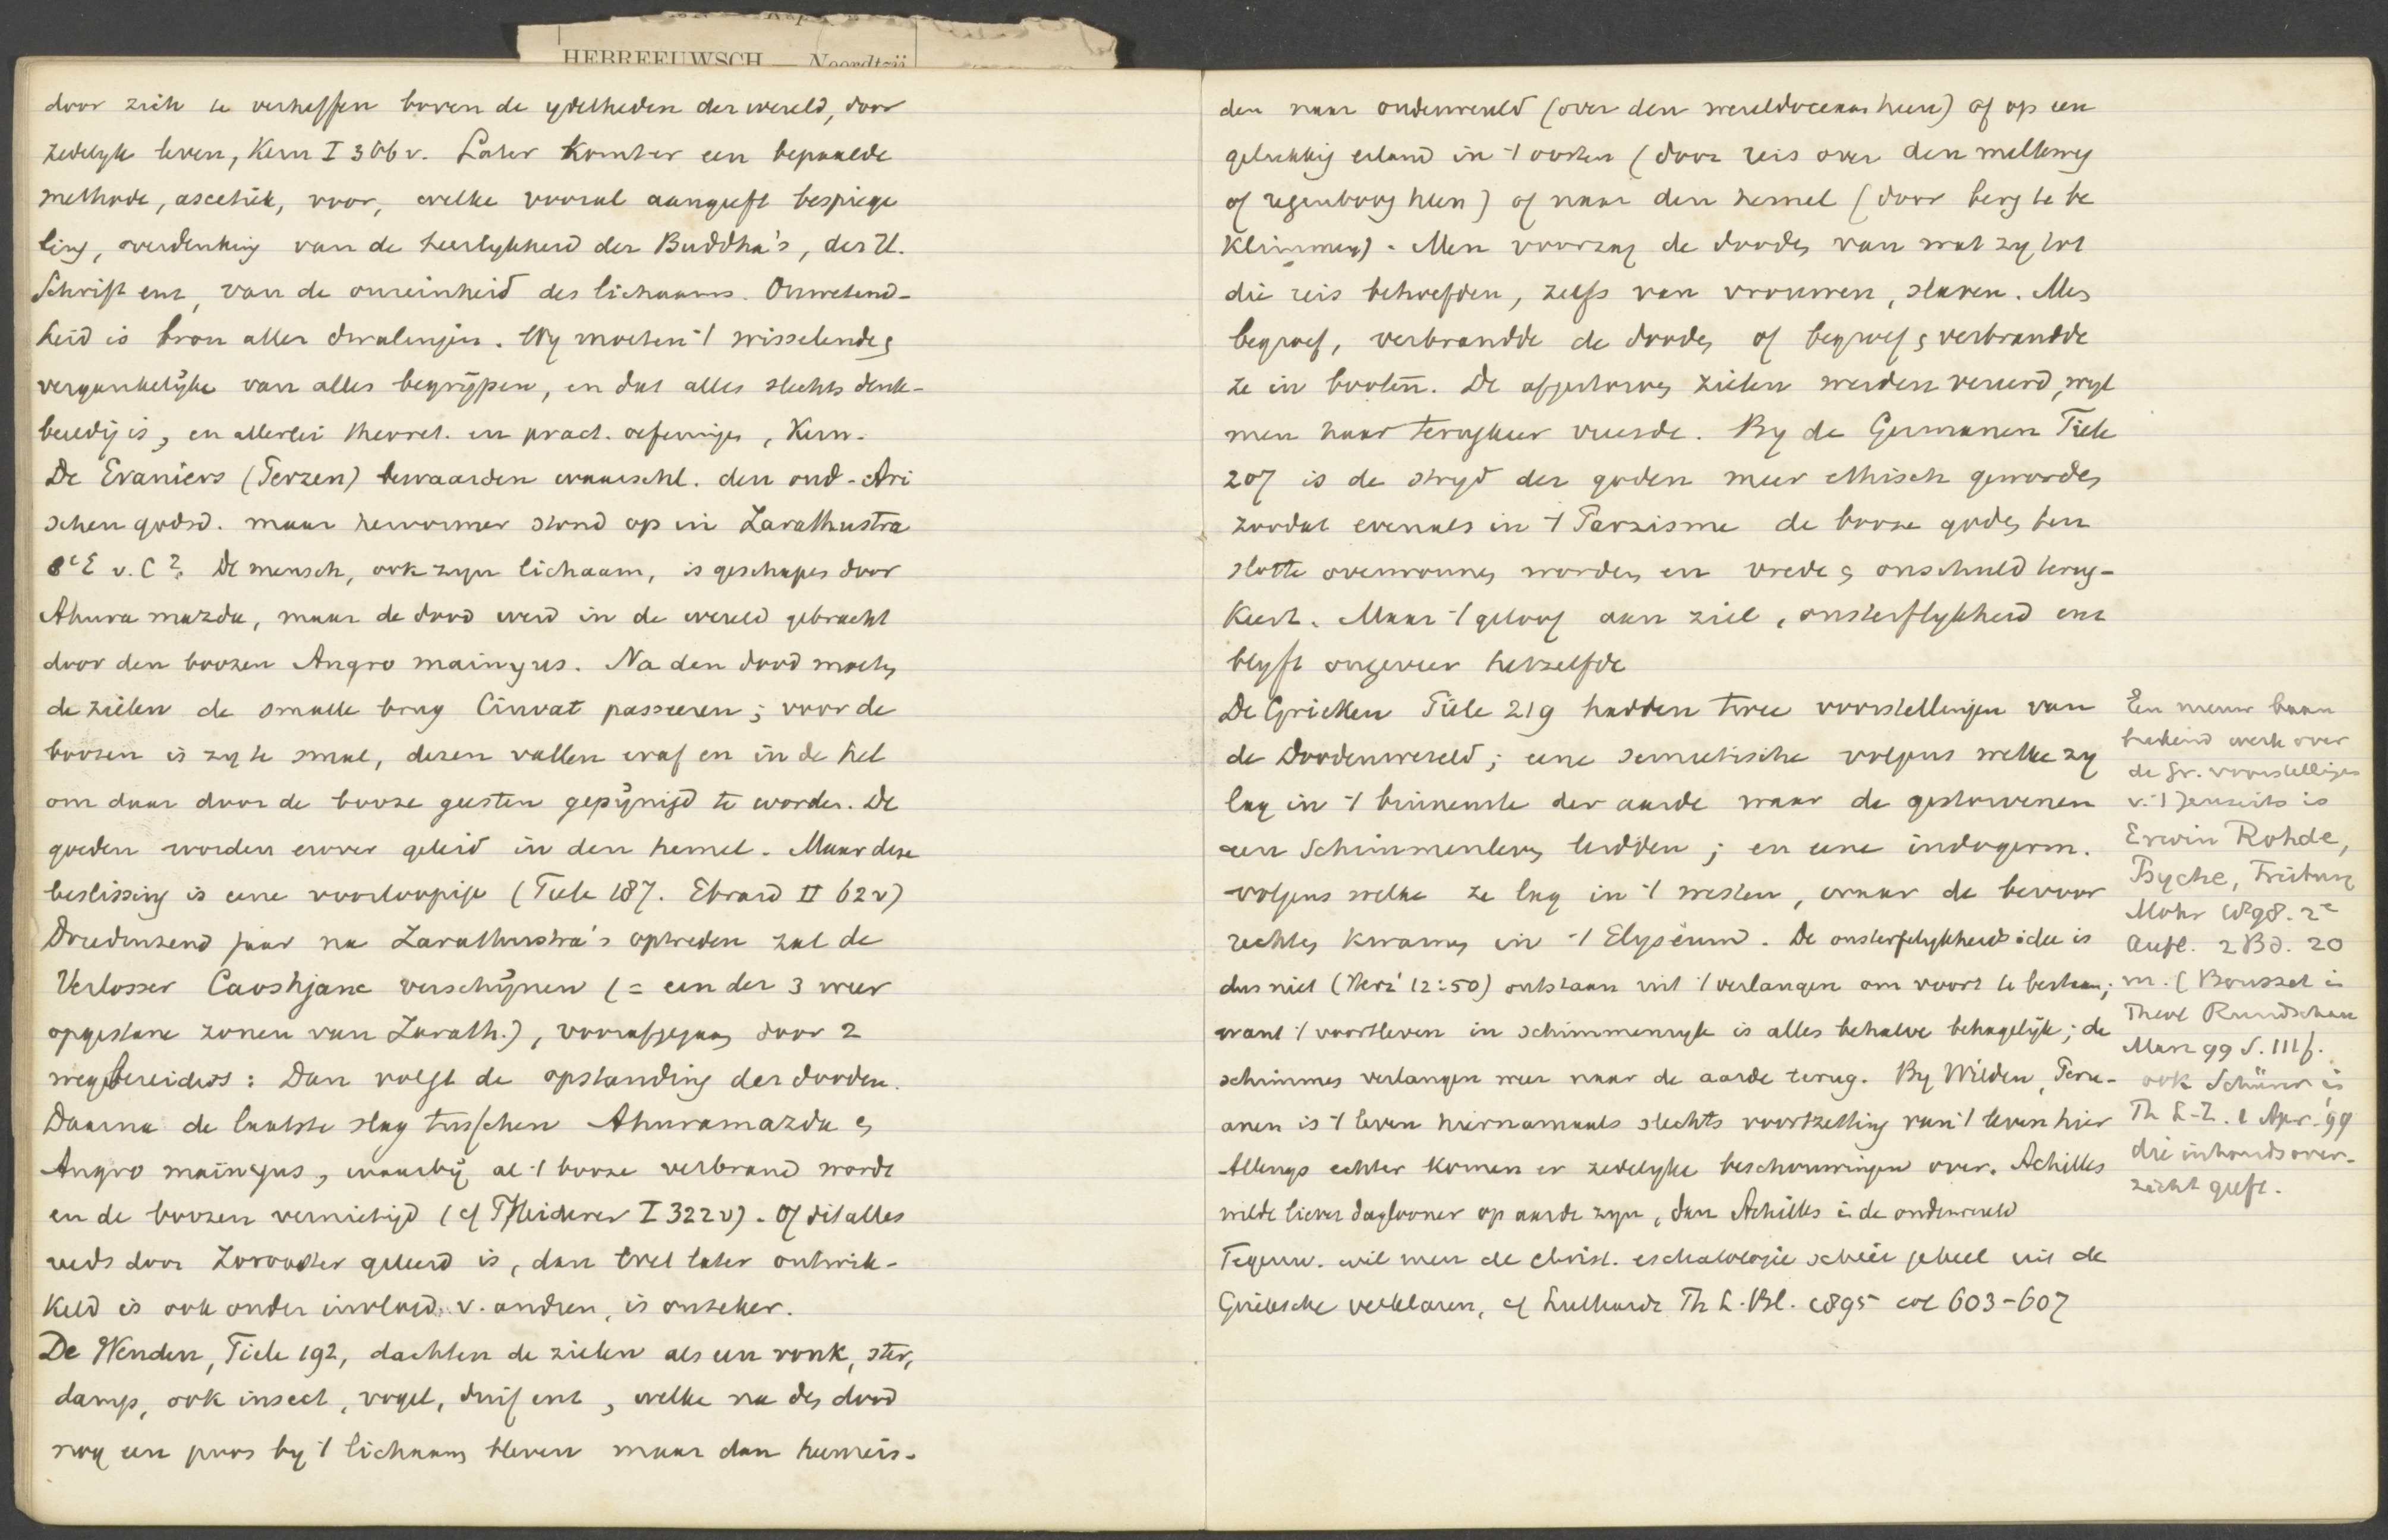 HEBREEUWSCH — Noordtzij
door zich te verheffen boven de ydelheden der wereld, door
zedelyk leven, Kern I 366v. Later komt er een bepaalde
methode, ascetiek, voor, welke vooral aangeeft bespiege
ling, overdenking van de heerlykheid der Buddha's, der H.
Schrift enz, van de onreinheid des lichaams. Onwetend-
heid is bron aller dwalingen. Wy moeten 't wisselende &
vergankelijke van alles begrijpen, en dat alles slechts denk-
beeldig is, en allerlei theoret. en pract. oefeningen, Kern.
De Eraniërs (Perzen) bewaarden waarschl. den oud-Ari
schen godsd. maar hervormer stond op in Zarathustra
8e E v. C?. De mensch, ook zyn lichaam, is geschapen door
Ahura mazda, maar de dood werd in de wereld gebracht
door den boozen Angro mainyus. Na den dood moeten
de zielen de smalle brug Cinvat passeeren; voor de
boozen is zy te smal, dezen vallen eraf en in de hel
om daar door de booze geesten gepijnigd te worden. De
goeden worden erover geleid in den hemel. Maar deze
beslissing is eene voorloopige (Tiele 187. Ebrard II 62v)
Drieduizend jaar na Zarathustra's optreden zal de
Verlosser Caoshjanc verschijnen (= een der 3 weer
opgestane zonen van Zarath.), voorafgegaan door 2
wegbereiders: Dan volgt de opstanding der dooden.
Daarna de laatste slag tusschen Ahuramazda en
Angro mainyus, waarbij al 't booze verbrand wordt
en de boozen vernietigd (cf Pfleiderer I 322v). Of dit alles
reeds door Zoroaster geleerd is, dan wel later ontwik-
keld is ook onder invloed v. andren, is onzeker.
De Wenden, Tiele 192, dachten de zielen als een vonk, ster,
damp, ook insect, vogel, duif enz, welke na den dood
nog een poos by 't lichaam bleven maar dan heenreis-
den naar onderwereld (over den wereldoceaan heen) of op een
gelukkig eiland in 't oosten (door reis over den melkweg
of regenboog heen) of naar den hemel (door berg te be
klimmen). Men voorzag de dooden van wat zy tot
die reis behoefden, zelfs van vrouwen, slaven. Men
begroef, verbrandde de dooden of begroef & verbrandde
ze in booten. De afgestorven zielen werden vereerd, wyl
men haar terugkeer vreesde. By de Germanen Tiele
207 is de stryd der goden meer ethisch geworden
zoodat evenals in 't Parzisme de booze goden ten
slotte overwonnen worden en vrede & onschuld terug-
keert. Maar 't geloof aan ziel, onsterflykheid enz
blyft ongeveer hetzelfde
De Grieken Tiele 219 hadden twee voorstellingen van
de Doodenwereld; eene semietische volgens welke zy
lag in 't binnenste der aarde waar de gestorvenen
een Schimmenleven leidden; en eene indogerm.
volgens welke ze lag in 't westen, waar de bevoor
rechten kwamen in 't Elyseum. De onsterfelykheids idee is
dus niet (12:50) ontstaan uit 't verlangen om voort te bestaan;
want 't voortleven in schimmenryk is alles behalve behagelijk; de
schimmen verlangen weer naar de aarde terug. By Wilden, Peru-
anen is 't leven hiernamaals slechts voortzetting van 't leven hier
Allengs echter komen er zedelyke beschouwingen over. Achilles
wilde liever daglooner op aarde zyn, dan Achilles in de onderwereld
Tegenw. wil men de christ. eschatologie schier geheel uit de
Grieksche verklaren, cf Luthardt Th L. Bl. 1895 col 603-607
Een nieuw baan
brekend werk over
de Gr. voorstellingen
v. 't Jenseits is
Erwin Rohde,
Psyche, Freiburg
Mohr 1898. 2e
Aufl. 2 Bd. 20
m. (Bousset in
Theol Rundschau
Marz 99 S. 111f.
ook Schürer in
Th L-Z. 1 Apr. '99
die inhoudsover-
zicht geeft.